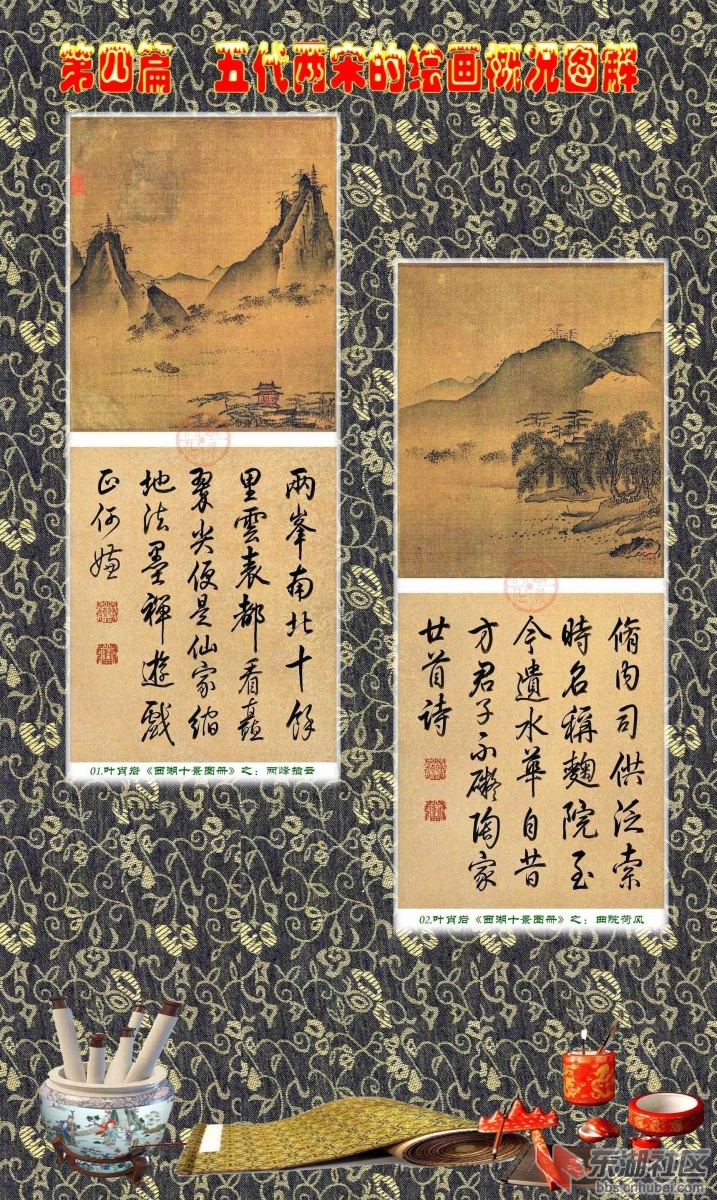 第四篇 五代两宋的绘画概况图解
兩峯南北十餘
里雲表都看矗
翠尖便是仙家縮
地法墨禅遊戲
正何嫌
01.叶肖岩《西湖十景图册》之：两峰插云
脩内司供泛索
時名稱麯院至
今遺水華自昔
方君子不礙陶家
廿首詩
02.叶肖岩《西湖十景图册》之：曲院荷风
东湖社区
bbs.cnhubei.com